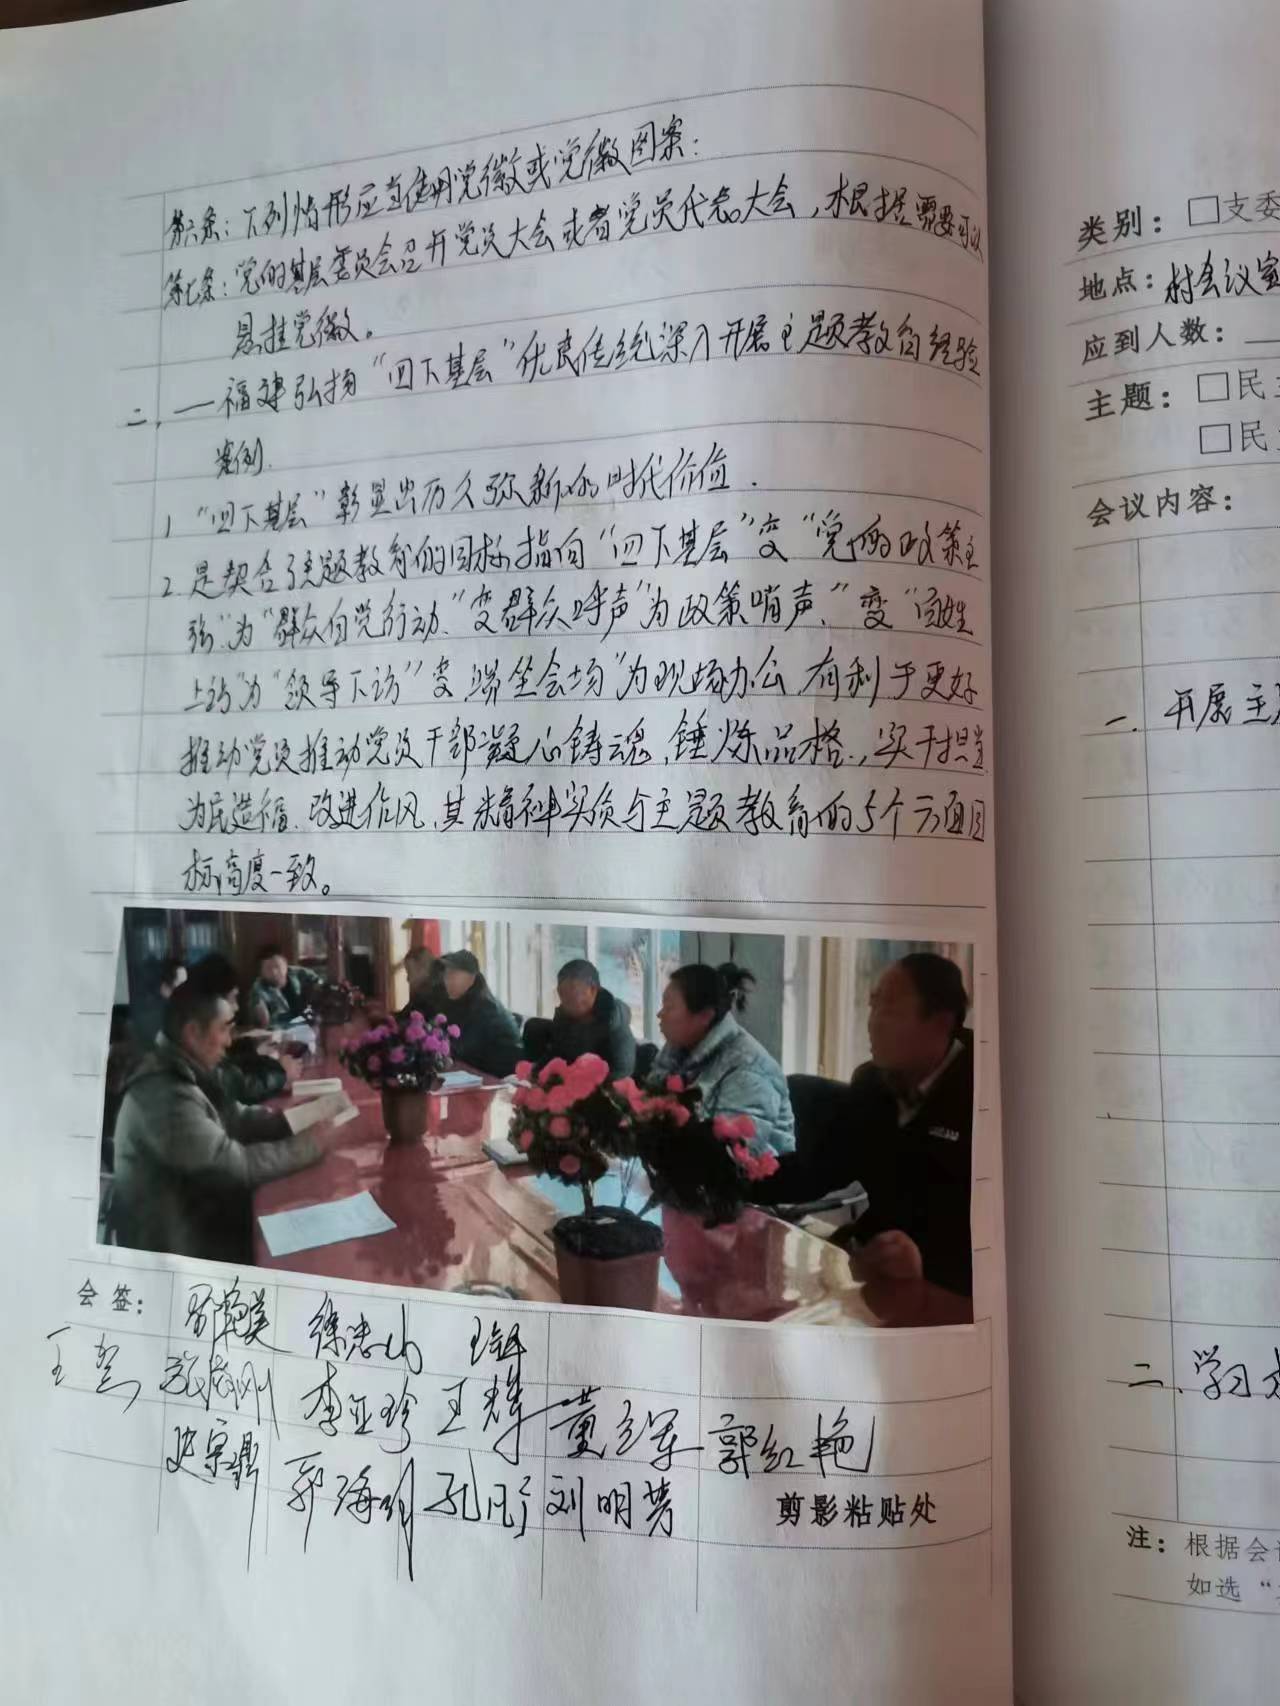 第六条：下列情形应当使用党徽或党徽图案：
第七条：党的基层委员会召开党员大会或者党员代表大会，根据需要可以
悬挂党徽。
二，一福建弘扬“四下基层”优良传统深入开展主题教育经验
案例.
1 “四下基层”彰显出历久弥新的时代价值.
2.是契合了主题教育的目标指向“四下基层”变“党的政策主
张”为“群众自觉行动、”变群众呼声”为政策哨声、”变“百姓
上访”为“领导下访”变“端坐会场”为现场办公 有利于更好
推动党员推动党员干部凝心铸魂,锤炼品格.,实干担当
为民造福、改进作风,其精神实质与主题教育的5个方面目
标高度一致。
会签：
徐忠山
李亚珍 王辉 黄立军 郭红艳
史宗鼎 郭海 孔凡 刘明芳
剪影粘贴处
类别：□支委
地点：村会议室
应到人数：
主题：□民主
□民
会议内容：
一. 开展主
二、学习
注：根据会
如选“